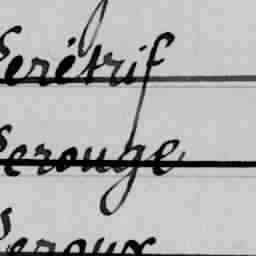 Lerétrif
Lerouge
Leroux